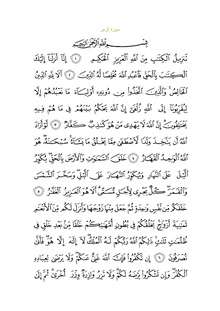 بِسْمِ اللَّهِ الرَّحْمَٰنِ الرَّحِيمِ
تَنزِيلُ الْكِتَٰبِ مِنَ اللَّهِ الْعَزِيزِ الْحَكِيمِ ١ إِنَّا أَنزَلْنَا إِلَيْكَ
الْكِتَٰبَ بِالْحَقِّ فَاعْبُدِ اللَّهَ مُخْلِصًا لَّهُ الدِّينَ ٢ أَلَا لِلَّهِ الدِّينُ
الْخَالِصُ وَالَّذِينَ اتَّخَذُوا مِن دُونِهِ أَوْلِيَاءَ مَا نَعْبُدُهُمْ إِلَّا
لِيُقَرِّبُونَا إِلَى اللَّهِ زُلْفَىٰ إِنَّ اللَّهَ يَحْكُمُ بَيْنَهُمْ فِي مَا هُمْ فِيهِ
يَخْتَلِفُونَ إِنَّ اللَّهَ لَا يَهْدِي مَنْ هُوَ كَٰذِبٌ كَفَّارٌ ٣ لَّوْ أَرَادَ
اللَّهُ أَن يَتَّخِذَ وَلَدًا لَّاصْطَفَىٰ مِمَّا يَخْلُقُ مَا يَشَاءُ سُبْحَٰنَهُ هُوَ
اللَّهُ الْوَٰحِدُ الْقَهَّارُ ٤ خَلَقَ السَّمَٰوَٰتِ وَالْأَرْضَ بِالْحَقِّ يُكَوِّرُ
الَّيْلَ عَلَى النَّهَارِ وَيُكَوِّرُ النَّهَارَ عَلَى الَّيْلِ وَسَخَّرَ الشَّمْسَ
وَالْقَمَرَ كُلٌّ يَجْرِي لِأَجَلٍ مُّسَمًّى أَلَا هُوَ الْعَزِيزُ الْغَفَّٰرُ ٥
خَلَقَكُم مِّن نَّفْسٍ وَٰحِدَةٍ ثُمَّ جَعَلَ مِنْهَا زَوْجَهَا وَأَنزَلَ لَكُم مِّنَ الْأَنْعَٰمِ
ثَمَٰنِيَةَ أَزْوَٰجٍ يَخْلُقُكُمْ فِي بُطُونِ أُمَّهَٰتِكُمْ خَلْقًا مِّن بَعْدِ خَلْقٍ فِي
ظُلُمَٰتٍ ثَلَٰثٍ ذَٰلِكُمُ اللَّهُ رَبُّكُمْ لَهُ الْمُلْكُ لَا إِلَٰهَ إِلَّا هُوَ فَأَنَّىٰ
تُصْرَفُونَ ٦ إِن تَكْفُرُوا فَإِنَّ اللَّهَ غَنِيٌّ عَنكُمْ وَلَا يَرْضَىٰ لِعِبَادِهِ
الْكُفْرَ وَإِن تَشْكُرُوا يَرْضَهُ لَكُمْ وَلَا تَزِرُ وَازِرَةٌ وِزْرَ أُخْرَىٰ ثُمَّ إِلَىٰ